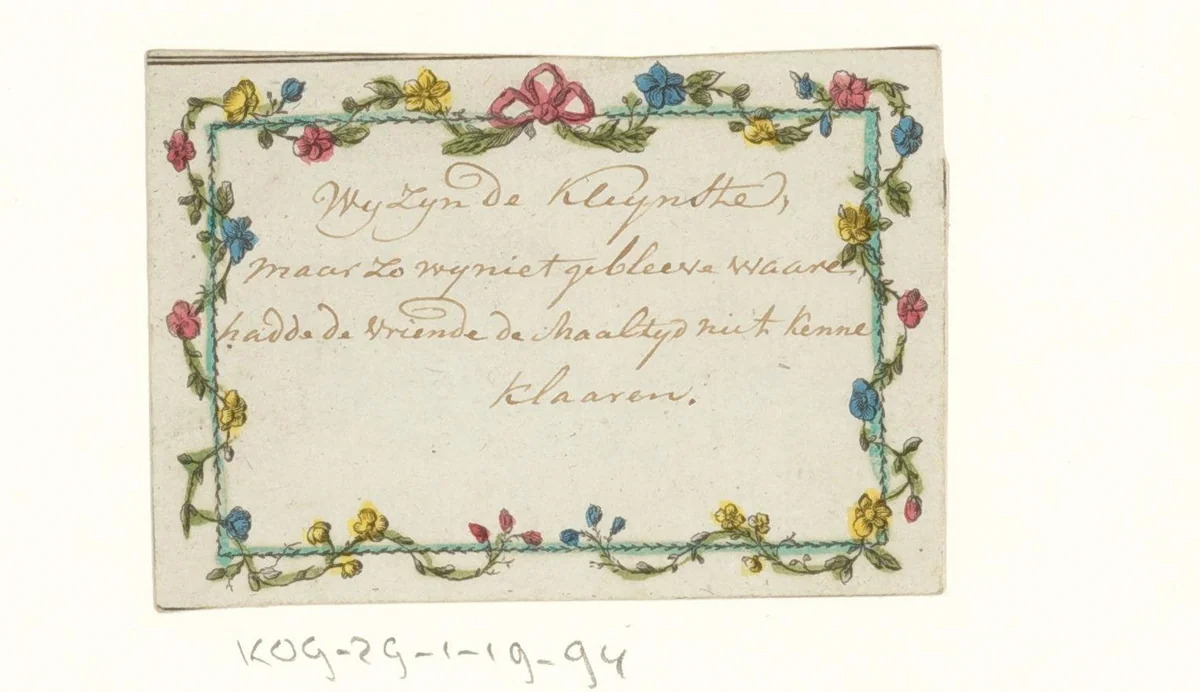 Wy Zyn de Kleynste,
maar zo wy niet gebleeve waare
hadde de Vriende de Maaltyd niet kenne
klaaren.
KOG-ZG-1-19-94